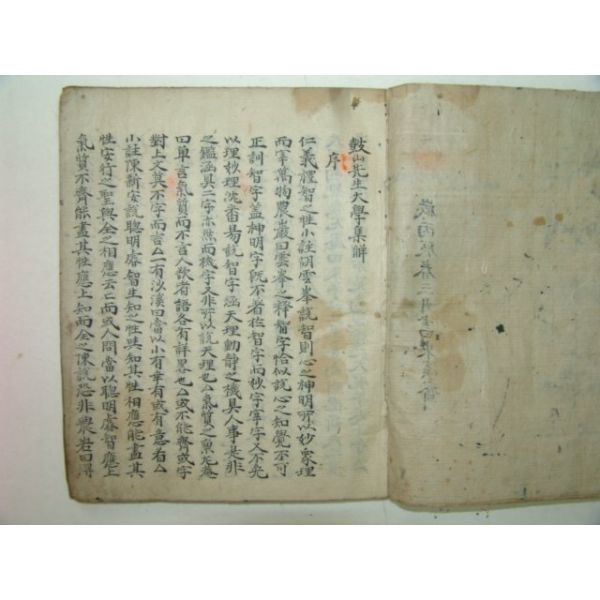 鼓山先生大學集解
序
仁義禮智之性小註胡雲峯說智則心之神明所以妙衆理
而宰萬物農巖曰雲峯之釋智字恰似說心之知覺不可
正訓智字盖神明字旣不著於智字而妙字宰字又不免
以理妙理沈番易說智字涵天理動靜之機具人事是非
之鑑涵具二字亦然而機字又非所以說天理也厶氣質之稟先
曰單言氣質而不言人欲者語各有詳畧也厶或不能齊或字
對上文莫不字而言厶一有沙溪曰當以小有幸有或有意看厶
小註陳新安說聰明睿智生知之性與知其性相應能盡其
性安行之聖與全之相應云云而或人問當以聰明睿智應上
氣質不齊能盡其性應上知而全之陳說恐非衆者曰得